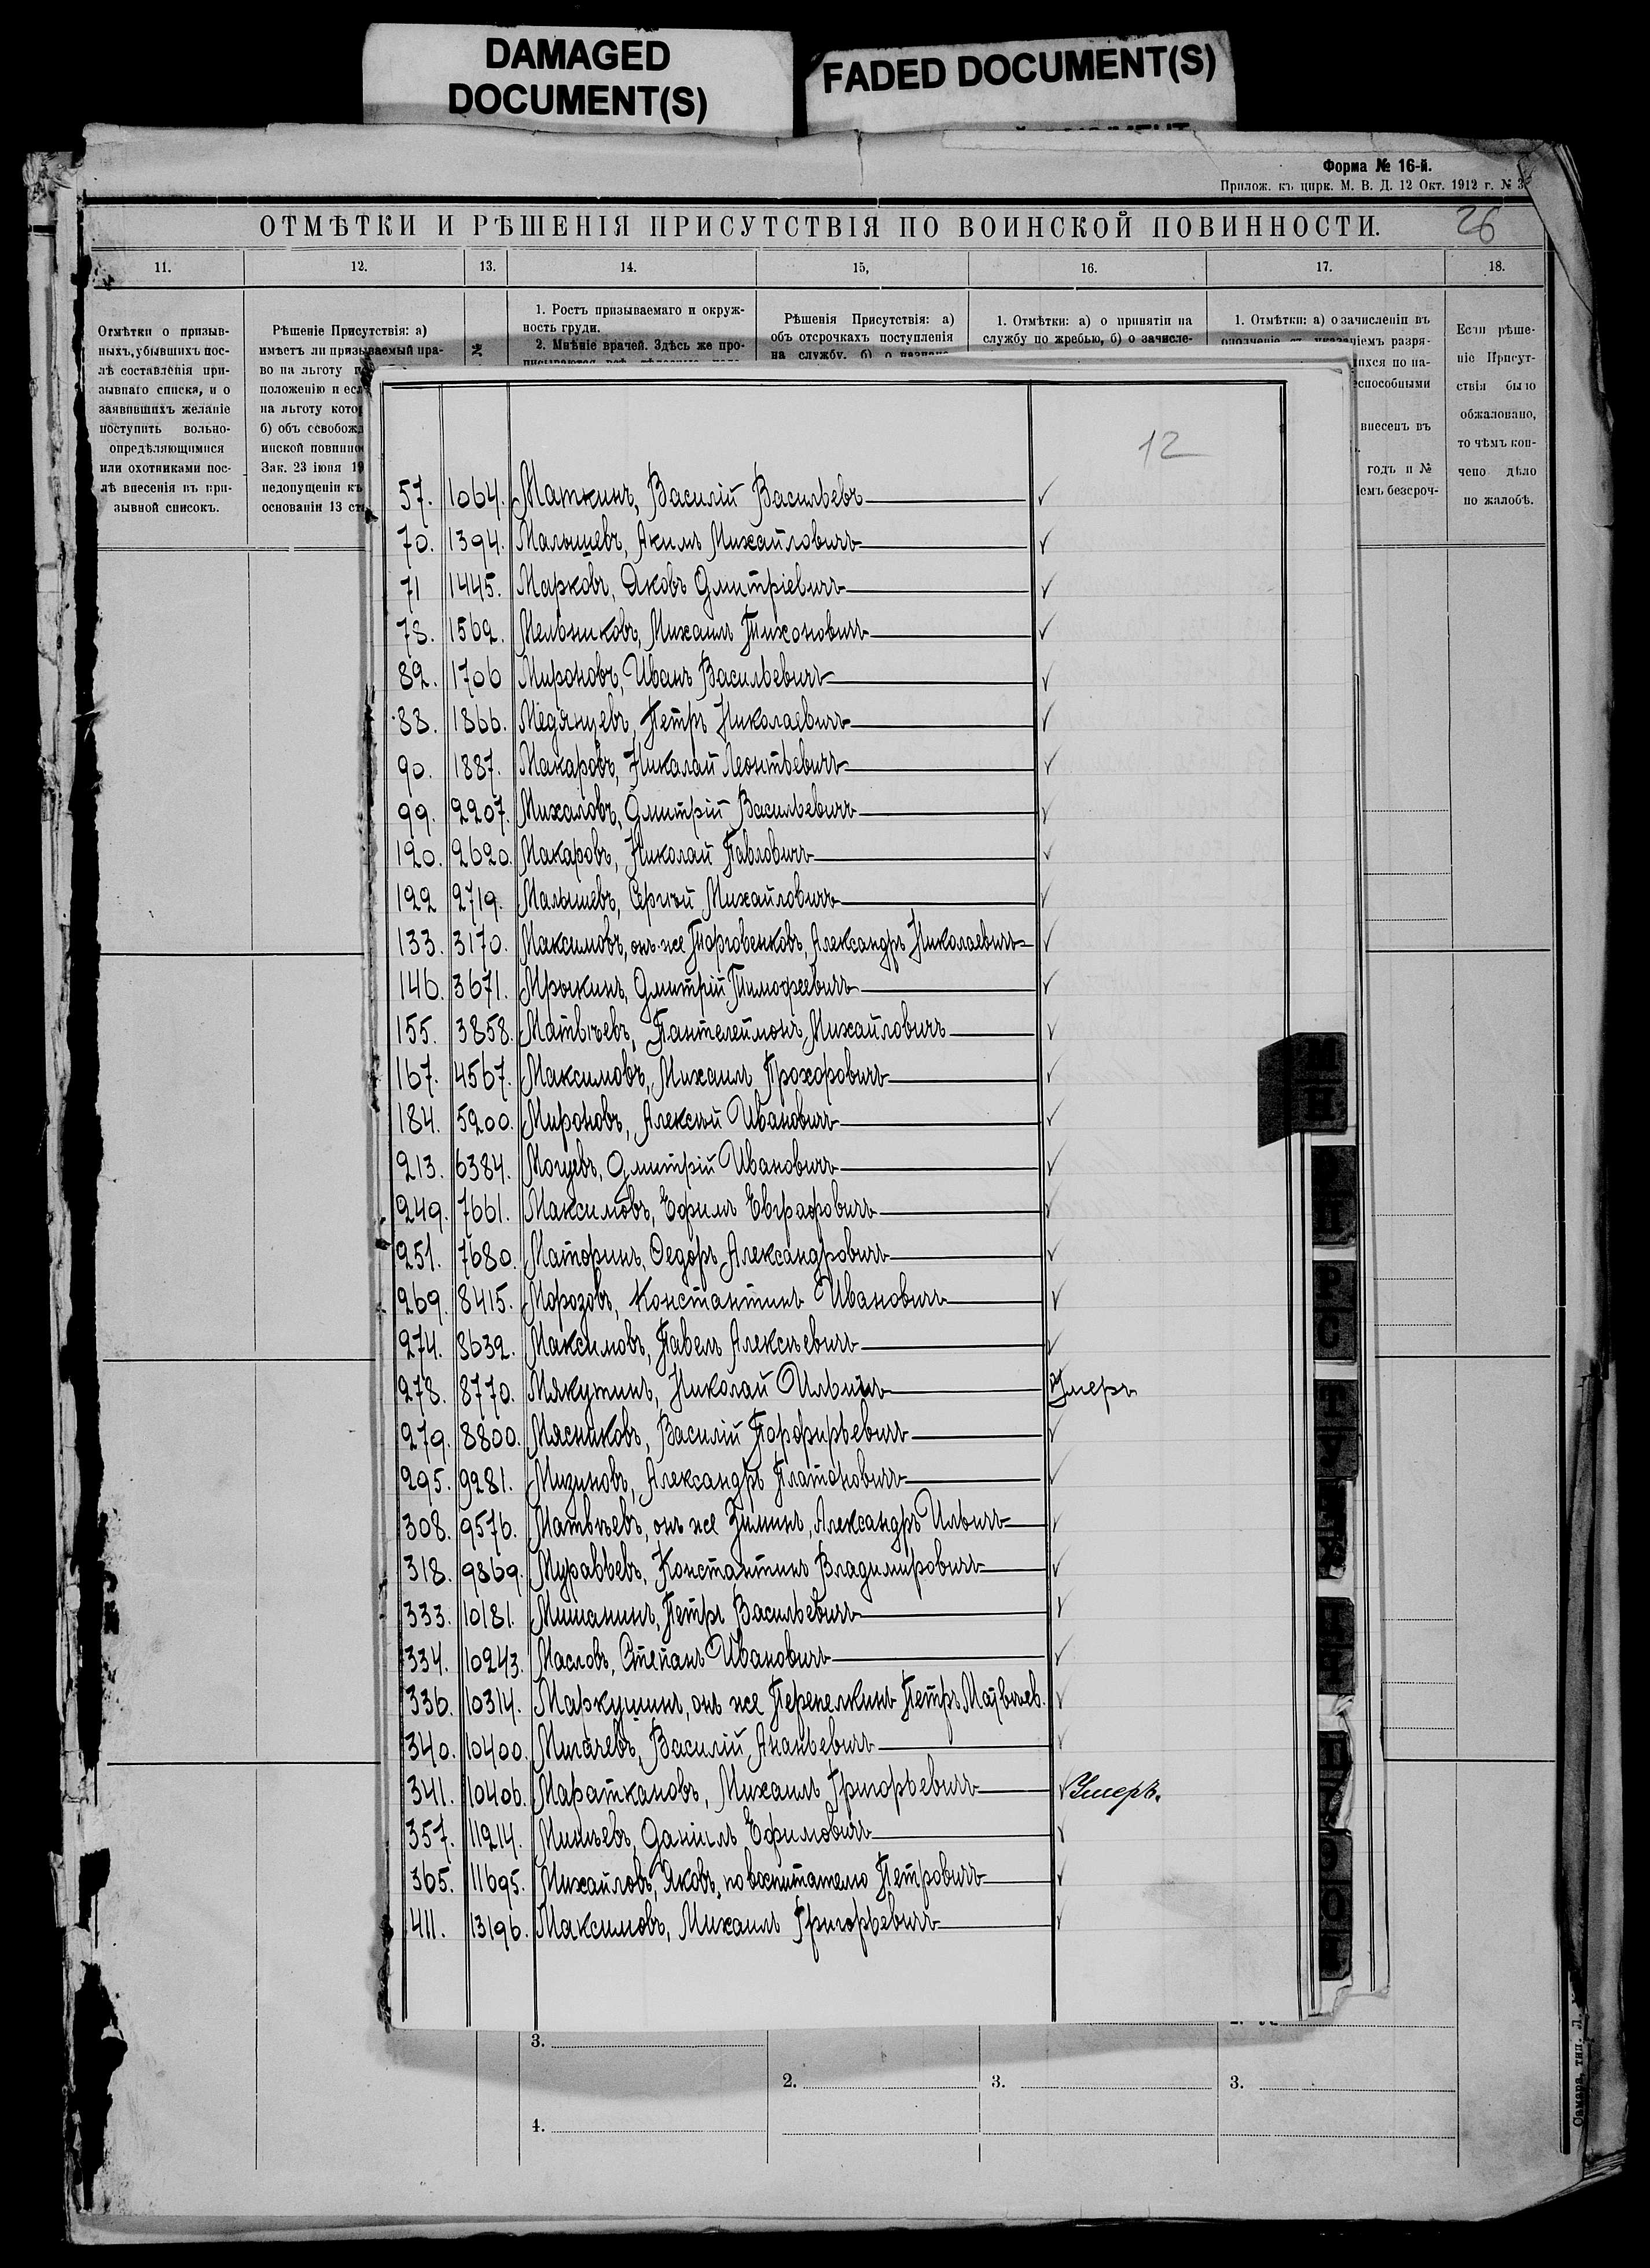 DAMAGED
DOCUMENT(S)
FADED DOCUMENT(S)
Форма № 16-й.
Прилож. къ цирк. М. В. Д. 12 Окт. 1912 г. № 3
ОТМѢТКИ И РѢШЕНІЯ ПРИСУТСТВІЯ ПО ВОИНСКОЙ ПОВИННОСТИ.
26
11. 12. 13. 14. 15, 16. 17. 18.
Отмѣтки о призыв-
ныхъ, убывшихъ пос-
лѣ составленія при-
зывнаго списка, и о
заявившихъ желаніе
поступить вольно-
опредѣляющимися
или охотниками пос-
лѣ внесенія въ при-
зывной списокъ.
Рѣшеніе Присутствія: а)
имѣетъ ли призываемый пра-
во на льготу
положенію и
на льготу
б) объ
инской
Зак. 23 іюня 19
недопущеніи
основаніи 13
№
1. Ростъ призываемаго и окруж-
ность груди.
2. Мнѣніе врачей. Здѣсь же про-
Рѣшенія Присутствія: а)
объ отсрочкахъ поступленія
на службу, б) о
1. Отмѣтки: а) о принятіи на
службу по жребію, б) о зачисле-
1. Отмѣтки: а) о зачисленіи въ
внесенъ въ
годъ и №
Если рѣше-
ніе Присут-
ствія было
обжаловано,
то чѣмъ кон-
чено дѣло
по жалобѣ.
12
57. 1064. Маткинъ, Василій Васильевъ ✓
70. 1394. Малышевъ, Акимъ Михайловичъ ✓
71 1445. Марковъ, Яковъ Дмитріевичъ ✓
78. 1562. Мельниковъ, Михаилъ Тихоновичъ ✓
82. 1706 Мироновъ, Иванъ Васильевичъ ✓
88. 1866. Медянцевъ, Петръ Николаевичъ ✓
90. 1887. Макаровъ, Николай Леонтьевичъ ✓
99. 2207. Михаловъ, Дмитрій Васильевичъ ✓
120. 2620. Макаровъ, Николай Павловичъ ✓
122 2719. Малышевъ, Сергѣй Михайловичъ ✓
133. 3170. Максимовъ, онъ-же Торговенковъ, Александръ Николаевичъ ✓
146. 3671. Мрыкинъ, Дмитрій Тимофеевичъ ✓
155. 3858. Матвѣевъ, Пантелеймонъ Михайловичъ ✓
167. 4567. Максимовъ, Михаилъ Прохоровичъ ✓
184. 5200. Мироновъ, Алексѣй Ивановичъ ✓
213. 6384. Мощевъ, Дмитрій Ивановичъ ✓
249. 7661. Максимовъ, Ефимъ Евграфовичъ ✓
251. 7680. Маторинъ, Ѳедоръ Александровичъ ✓
269. 8415. Морозовъ, Константинъ Ивановичъ ✓
274. 8632. Максимовъ, Павелъ Алексѣевичъ ✓
278. 8770. Мякутинъ, Николай Ильичъ Умеръ
279. 8800. Мясниковъ, Василій Порфирьевичъ ✓
295. 9281. Мизиновъ, Александръ Платоновичъ ✓
308. 9576. Матвѣевъ, онъ же Зиминъ, Александръ Ильичъ ✓
318. 9869. Муравьевъ, Константинъ Владимировичъ ✓
333. 10181. Мишанинъ, Петръ Васильевичъ ✓
334. 10243. Масловъ, Степанъ Ивановичъ ✓
336. 10314. Маркушинъ, онъ же Перепелкинъ Петръ Матвѣев. ✓
340. 10400. Мигачевъ, Василій Ананьевичъ ✓
341. 10406. Мараткановъ, Михаилъ Григорьевичъ ✓Умеръ.
357. 11214. Минѣевъ, Даніилъ Ефимовичъ ✓
365. 11695. Михайловъ, Яковъ, по воспитателю Петровичъ ✓
411. 13196. Максимовъ, Михаилъ Григорьевичъ ✓
3.
2. 3. 3.
4.
Самара, тип. Л.